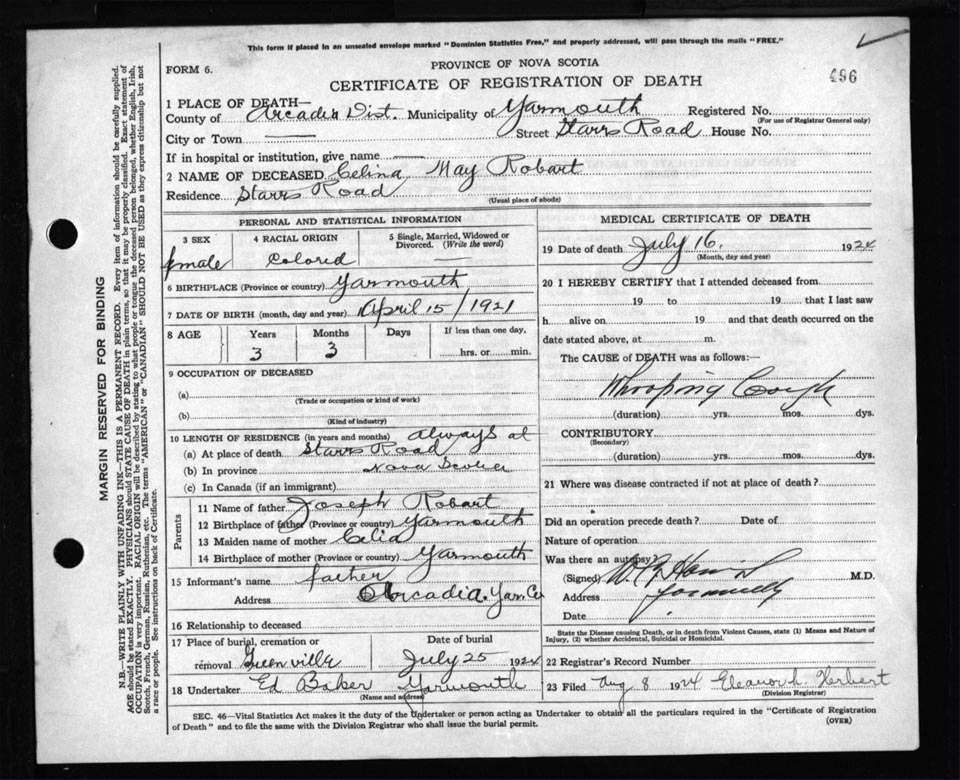 This form if placed in an unsealed envelope marked "Dominion Statistics Free," and properly addressed, will pass through the mails "FREE."
FORM 6.
PROVINCE OF NOVA SCOTIA
496
CERTIFICATE OF REGISTRATION OF DEATH
1 PLACE OF DEATH—
County of Arcadia Dist. Municipality of Yarmouth Registered No.
(For use of Registrar General only)
City or Town — Street Starrs Road House No.
If in hospital or institution, give name —
2 NAME OF DECEASED Celina May Robart
Residence Starrs Road
(Usual place of abode)
PERSONAL AND STATISTICAL INFORMATION
3 SEX 4 RACIAL ORIGIN 5 Single, Married, Widowed or Divorced. (Write the word)
female Colored —
6 BIRTHPLACE (Province or country) Yarmouth
7 DATE OF BIRTH (month, day and year) April 15/1921
8 AGE Years Months Days If less than one day,
3 3 hrs. or min.
9 OCCUPATION OF DECEASED
(a)
(Trade or occupation or kind of work)
(b)
(Kind of industry)
10 LENGTH OF RESIDENCE (in years and months) always at
(a) At place of death Starrs Road
(b) In province Nova Scotia
(c) In Canada (if an immigrant)
Parents
11 Name of father Joseph Robart
12 Birthplace of father (Province or country) Yarmouth
13 Maiden name of mother Celia
14 Birthplace of mother (Province or country) Yarmouth
15 Informant's name father
Address Arcadia. Yar. Co
16 Relationship to deceased
17 Place of burial, cremation or Date of burial
removal Greenville July 25 1924
18 Undertaker Ed Baker Yarmouth
(Name and address)
MEDICAL CERTIFICATE OF DEATH
19 Date of death July 16. 1924
(Month, day and year)
20 I HEREBY CERTIFY that I attended deceased from
19 to 19 that I last saw
h alive on 19 and that death occurred on the
date stated above, at m.
The CAUSE of DEATH was as follows:—
Whooping Cough
(duration) yrs. mos. dys.
CONTRIBUTORY
(Secondary)
(duration) yrs. mos. dys.
21 Where was disease contracted if not at place of death?
Did an operation precede death? Date of
Nature of operation
Was there an autopsy?
(Signed) M.D.
Address
Date
State the Disease causing Death, or in death from Violent Causes, state (1) Means and Nature of
Injury, (2) whether Accidental, Suicidal or Homicidal.
22 Registrar's Record Number
23 Filed Aug 8 1924 Eleanor h. Herbert
(Division Registrar)
SEC. 46—Vital Statistics Act makes it the duty of the Undertaker or person acting as Undertaker to obtain all the particulars required in the "Certificate of Registration
of Death" and to file the same with the Division Registrar who shall issue the burial permit.
(OVER)
MARGIN RESERVED FOR BINDING
N.B.—WRITE PLAINLY WITH UNFADING INK—THIS IS A PERMANENT RECORD. Every item of information should be carefully supplied.
AGE should be stated EXACTLY. PHYSICIANS should STATE CAUSE OF DEATH in plain terms, so that it may be properly classified. Exact statement of
OCCUPATION is very important. RACIAL ORIGIN will be described by stating to what people or tongue the deceased person belonged, whether English, Irish,
Scotch, French, German, Russian, Ruthenian, etc. The terms "AMERICAN" or "CANADIAN" SHOULD NOT BE USED as they express citizenship but not
a race or people. See instructions on back of Certificate.